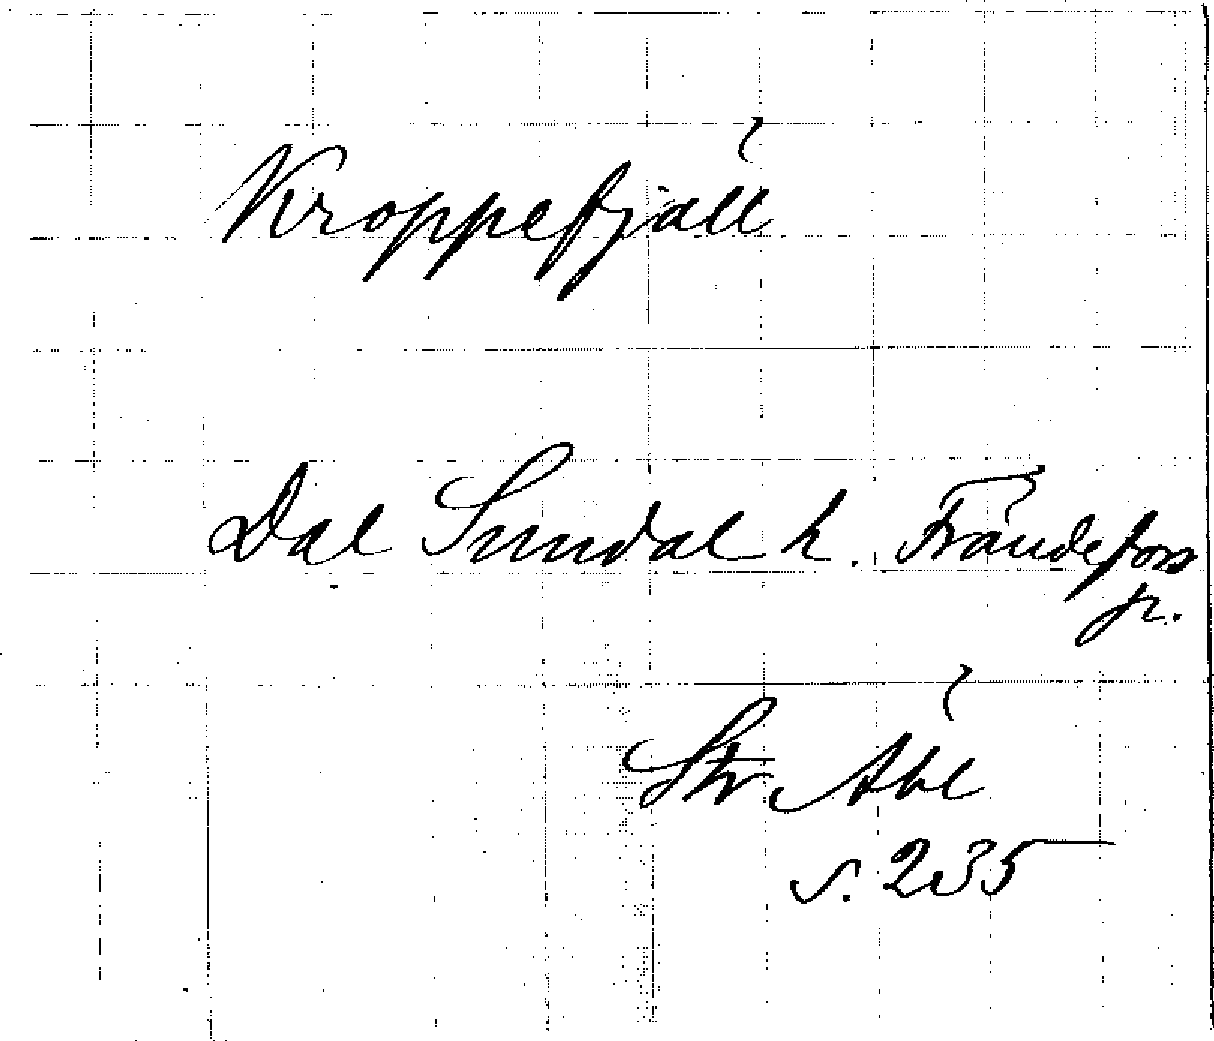 Kroppefjäll
Dal Sundal h. Frändefors
p.
Str
s. 235